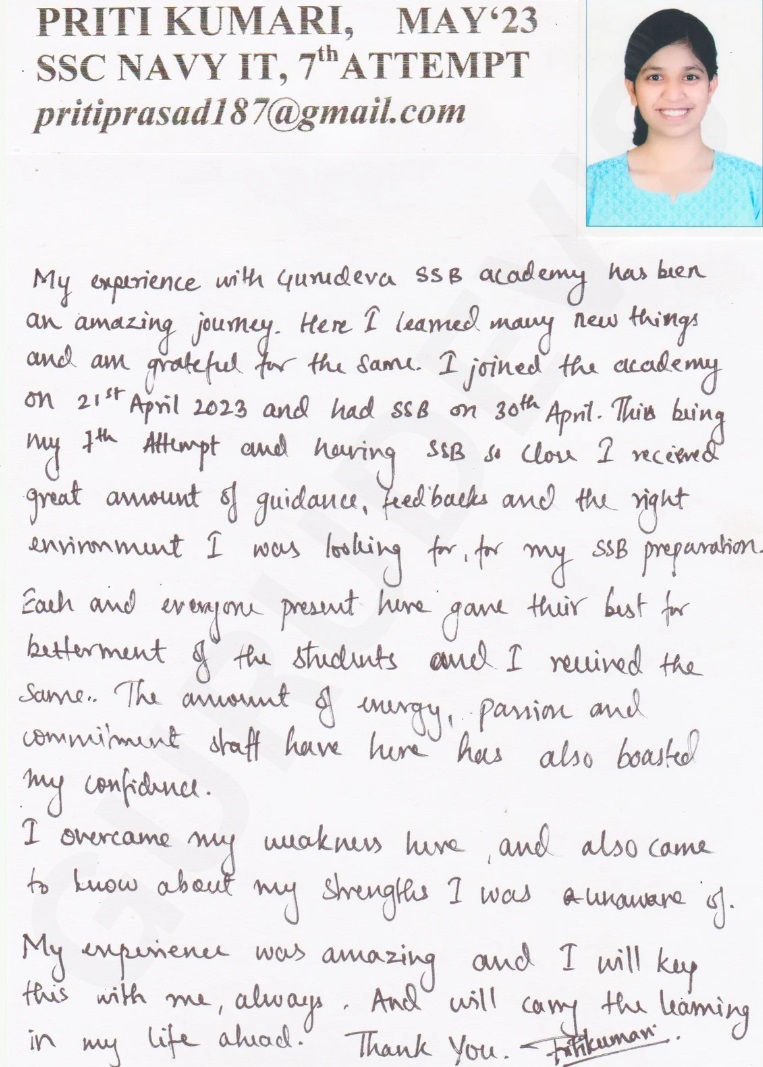 PRITI KUMARI, MAY‘23
SSC NAVY IT, 7th ATTEMPT
pritiprasad187@gmail.com
My experience with Gurudeva SSB academy has been
an amazing journey. Here I learned many new things
and am grateful for the same. I joined the academy
on 21st April 2023 and had SSB on 30th April. This being
my 7th Attempt and having SSB so close I received
great amount of guidance, feedbacks and the right
environment I was looking for, for my SSB preparation.
Each and everyone present here gave their best for
betterment of the students and I received the
same.. The amount of energy, passion and
commitment staff have here has also boasted
my confidence.
I overcame my weakness here, and also came
to know about my strengths I was unaware of.
My experience was amazing and I will keep
this with me, always. And will carry the learning
in my life ahead. Thank You. Pritikumari.
GURUDEV